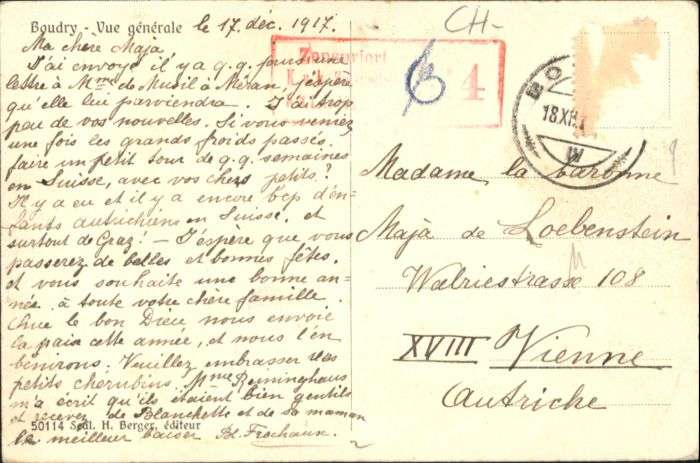 Boudry - Vue générale le 17. déc. 1917.
Ma chère Maja
J'ai envoyé il y a q.q. jours une
lettre à Mme de Musil à Méran, j'espère
qu'elle lui parviendra. J'ai trop
peu de vos nouvelles. Si vous veniez
une fois les grands froids passés,
faire un petit tour de q.q. semaines
en Suisse, avec vos chers petits?
Il y a eu et il y a encore bcp d'en-
fants autrichiens en Suisse, et
surtout de Graz! - J'espère que vous
passerez de belles et bonnes fêtes,
et vous souhaite une bonne an-
née à toute votre chère famille.
Que le bon Dieu nous envoie
la paix cette année, et nous l'en
bénirons. Veuillez embrasser vos
petits cherubins. Mme Reininghaus
m'a écrit qu'ils étaient bien gentils
et recevez de Blanchette et de sa maman
le meilleur baiser Bl. Frochaux.
50114 Sedl. H. Berger, éditeur
CH-
4
18.XII.
Madame la baronne
Maja de Loebenstein
Walriestrasse 108
XVIII Vienne
Autriche